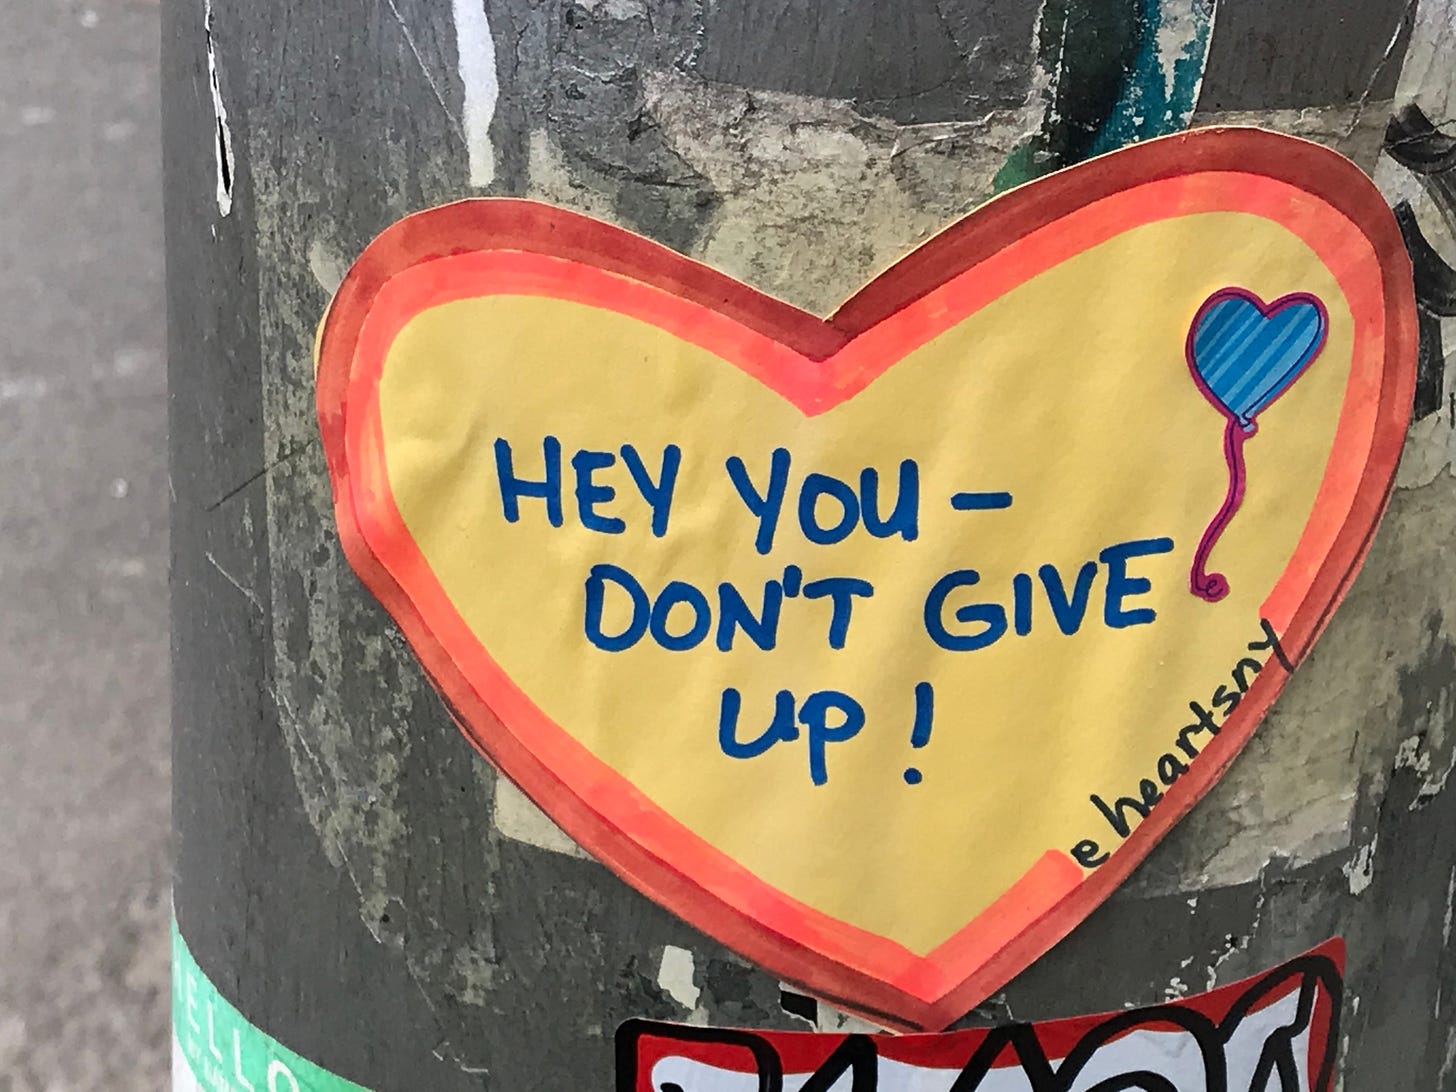 HEY YOU -
DON'T GIVE
UP!
@heartsny